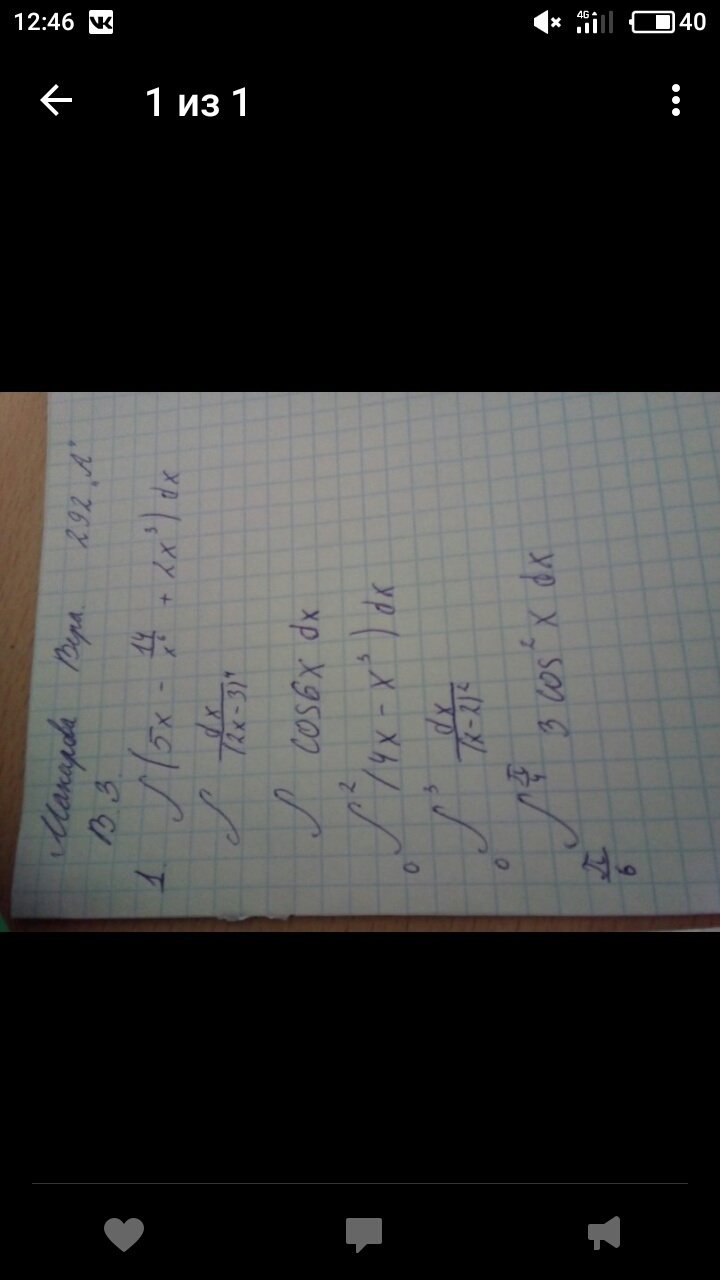 12:46
4G
40
1 из 1
Макарова Вера 292 "А"
В 3.
1. ∫(5x - 14/x⁶ + 2x³) dx
∫ dx/(2x-3)⁴
∫ cos6x dx
∫₀² (4x - x³) dx
∫₀³ dx/(x-2)²
∫ π/6 π/4 3 cos² x dx